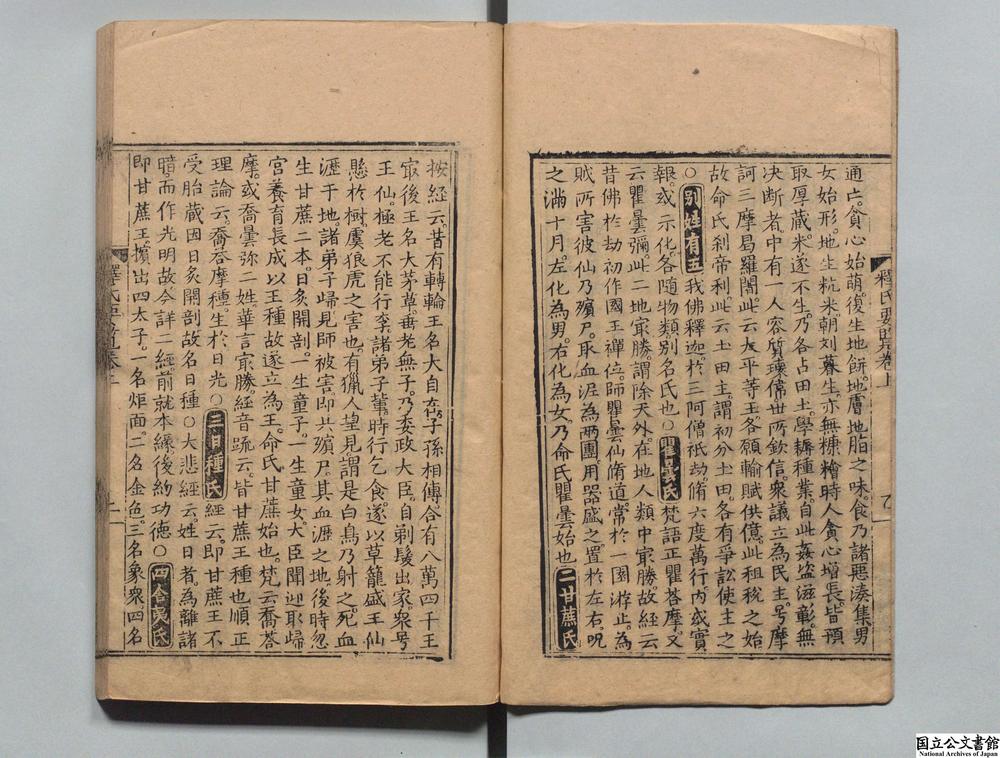 通亡貪心始萌復生地餅地膚地脂之味食乃諸惡湊集男
女始形地生粇米朝刈暮生亦無糠糩時人貪心增長皆預
取厚藏米遂不生乃各占田土學耕種業自此姦盜滋彰無
决斷者中有一人容質瓌偉世所欽信衆議立為民主号摩
訶三摩曷羅闍此云大平等王各願輸賦供億此租稅之始
故命氏刹帝利此云土田主謂初分土田各有爭訟使主之
○別姓有五我佛釋迦於三阿僧祇劫脩六度萬行内或實
報或示化各随物類別名氏也○瞿曇氏梵語正瞿荅摩又
云瞿曇彌此二地㝡勝謂除天外在地人類中㝡勝故經云
昔佛於劫初作國王禪位師瞿曇仙脩道常於一園游止為
賊所害彼仙乃殯尸取血泥為兩團用器盛之置於左右呪
之滿十月左化為男右化為女乃命氏瞿曇始也二甘蔗氏
釋氏要覽卷上
按經云昔有轉輪王名大自在子孫相傳合有八萬四千王
㝡後王名大茅草垂老無子乃委政大臣自剃髮出家衆号
王仙極老不能行李諸弟子輩時行乞食遂以草籠盛王仙
懸於樹虞狼虎之害也有獵人望見謂是白鳥乃射之死血
瀝于地諸弟子歸見師被害即共殯尸其血瀝之地後時忽
生甘蔗二本日炙開剖一生童子一生童女大臣聞迎取歸
宮養育長成以王種故遂立為王命氏甘蔗始也梵云喬荅
摩或喬曇弥二姓華言㝡勝經音疏云皆甘蔗王種也順正
理論云喬荅摩種生於日光○三日種氏經云即甘蔗王不
受胎藏因日炙開剖故名日種○大悲經云姓日者為離諸
暗而作光明故今詳二經前就本緣後約功德○四舍夷氏
即甘蔗王擯出四太子一名炬面二名金色三名象衆四名
国立公文書館
National Archives of Japan